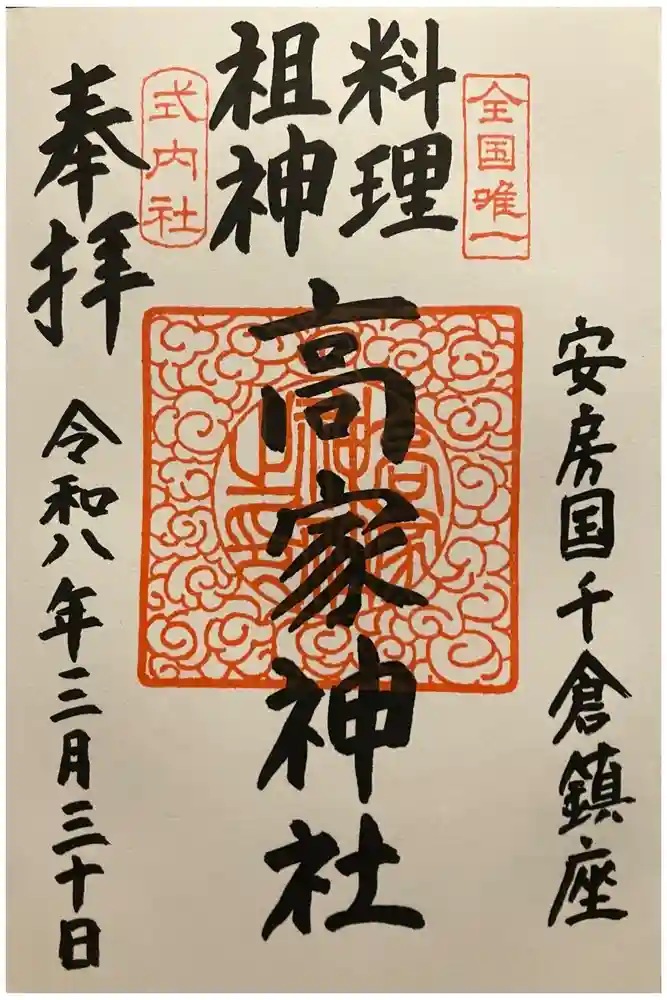 全国唯一
料理
祖神
式内社
奉拝
安房国千倉鎮座
高家神社
令和八年三月三十日